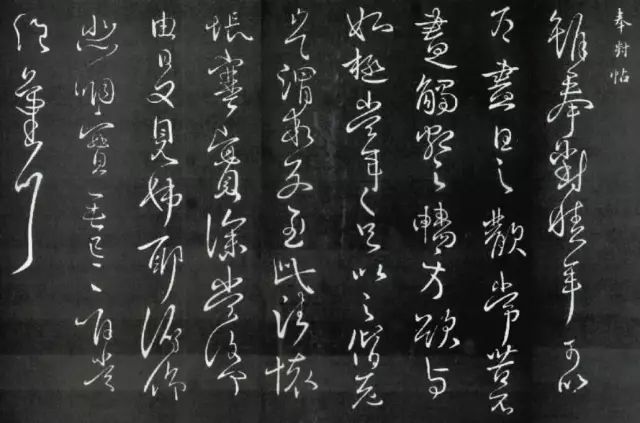 奉對帖
雖奉對積年可以
為盡日之歡常苦不
盡觸類之暢方欲與
姊極當年之足以之偕老
豈謂乖別至此諸懷
悵塞實深當復何
由日夕見姊耶俯仰
悲咽實無已已唯當
絕氣耳